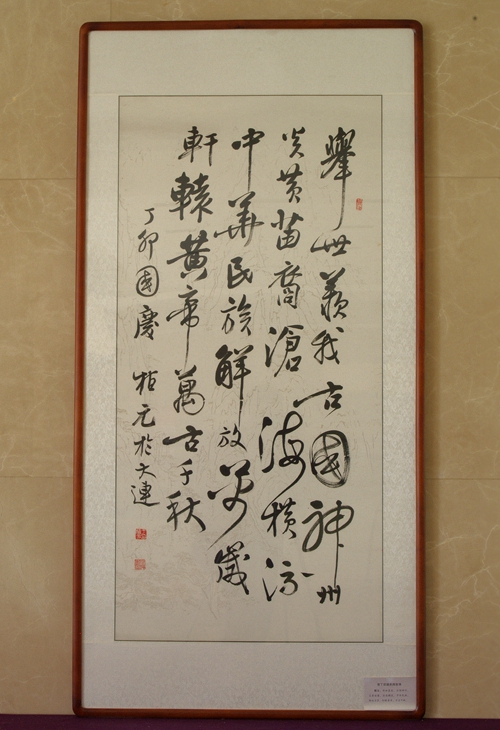 舉世羨我古國神州
炎黄苗裔滄海横流
中華民族解放万歲
軒轅黄帝萬古千秋
丁卯國慶 柏元於大連